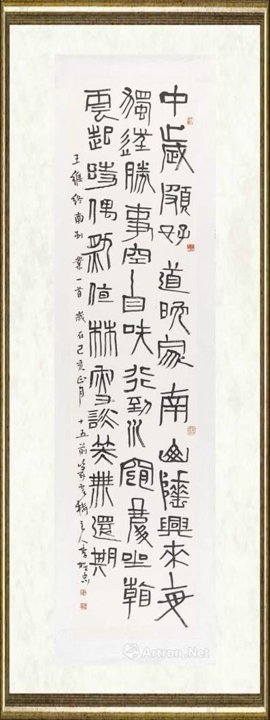 中歲頗好道晚家南山陲興來每
獨往勝事空自知行到水窮處坐看
雲起時偶然值林叟談笑無還期
王維終南別業一首 歲在己亥正月十五前 主人
Artron.Net